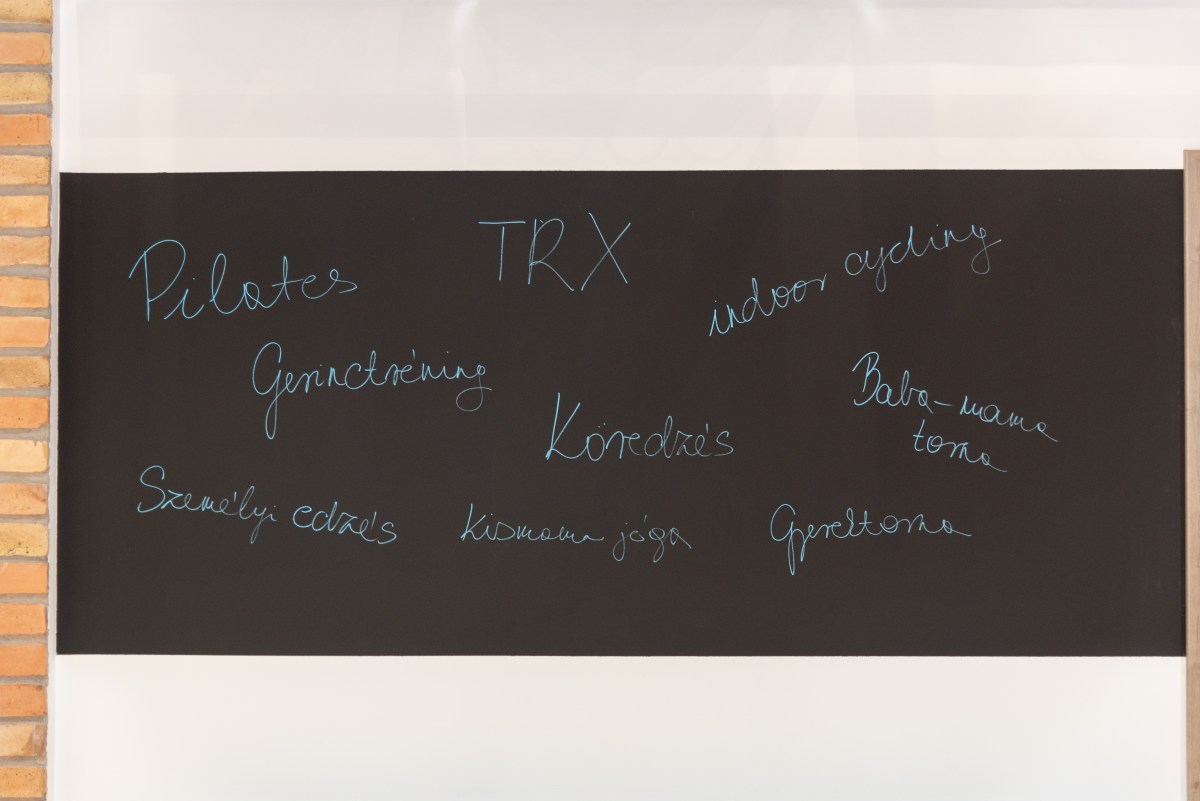 Pilates
TRX
indoor cycling
Gerinctréning
Köredzés
Baba-mama
torna
Személyi edzés
Kismama jóga
Gyerektorna